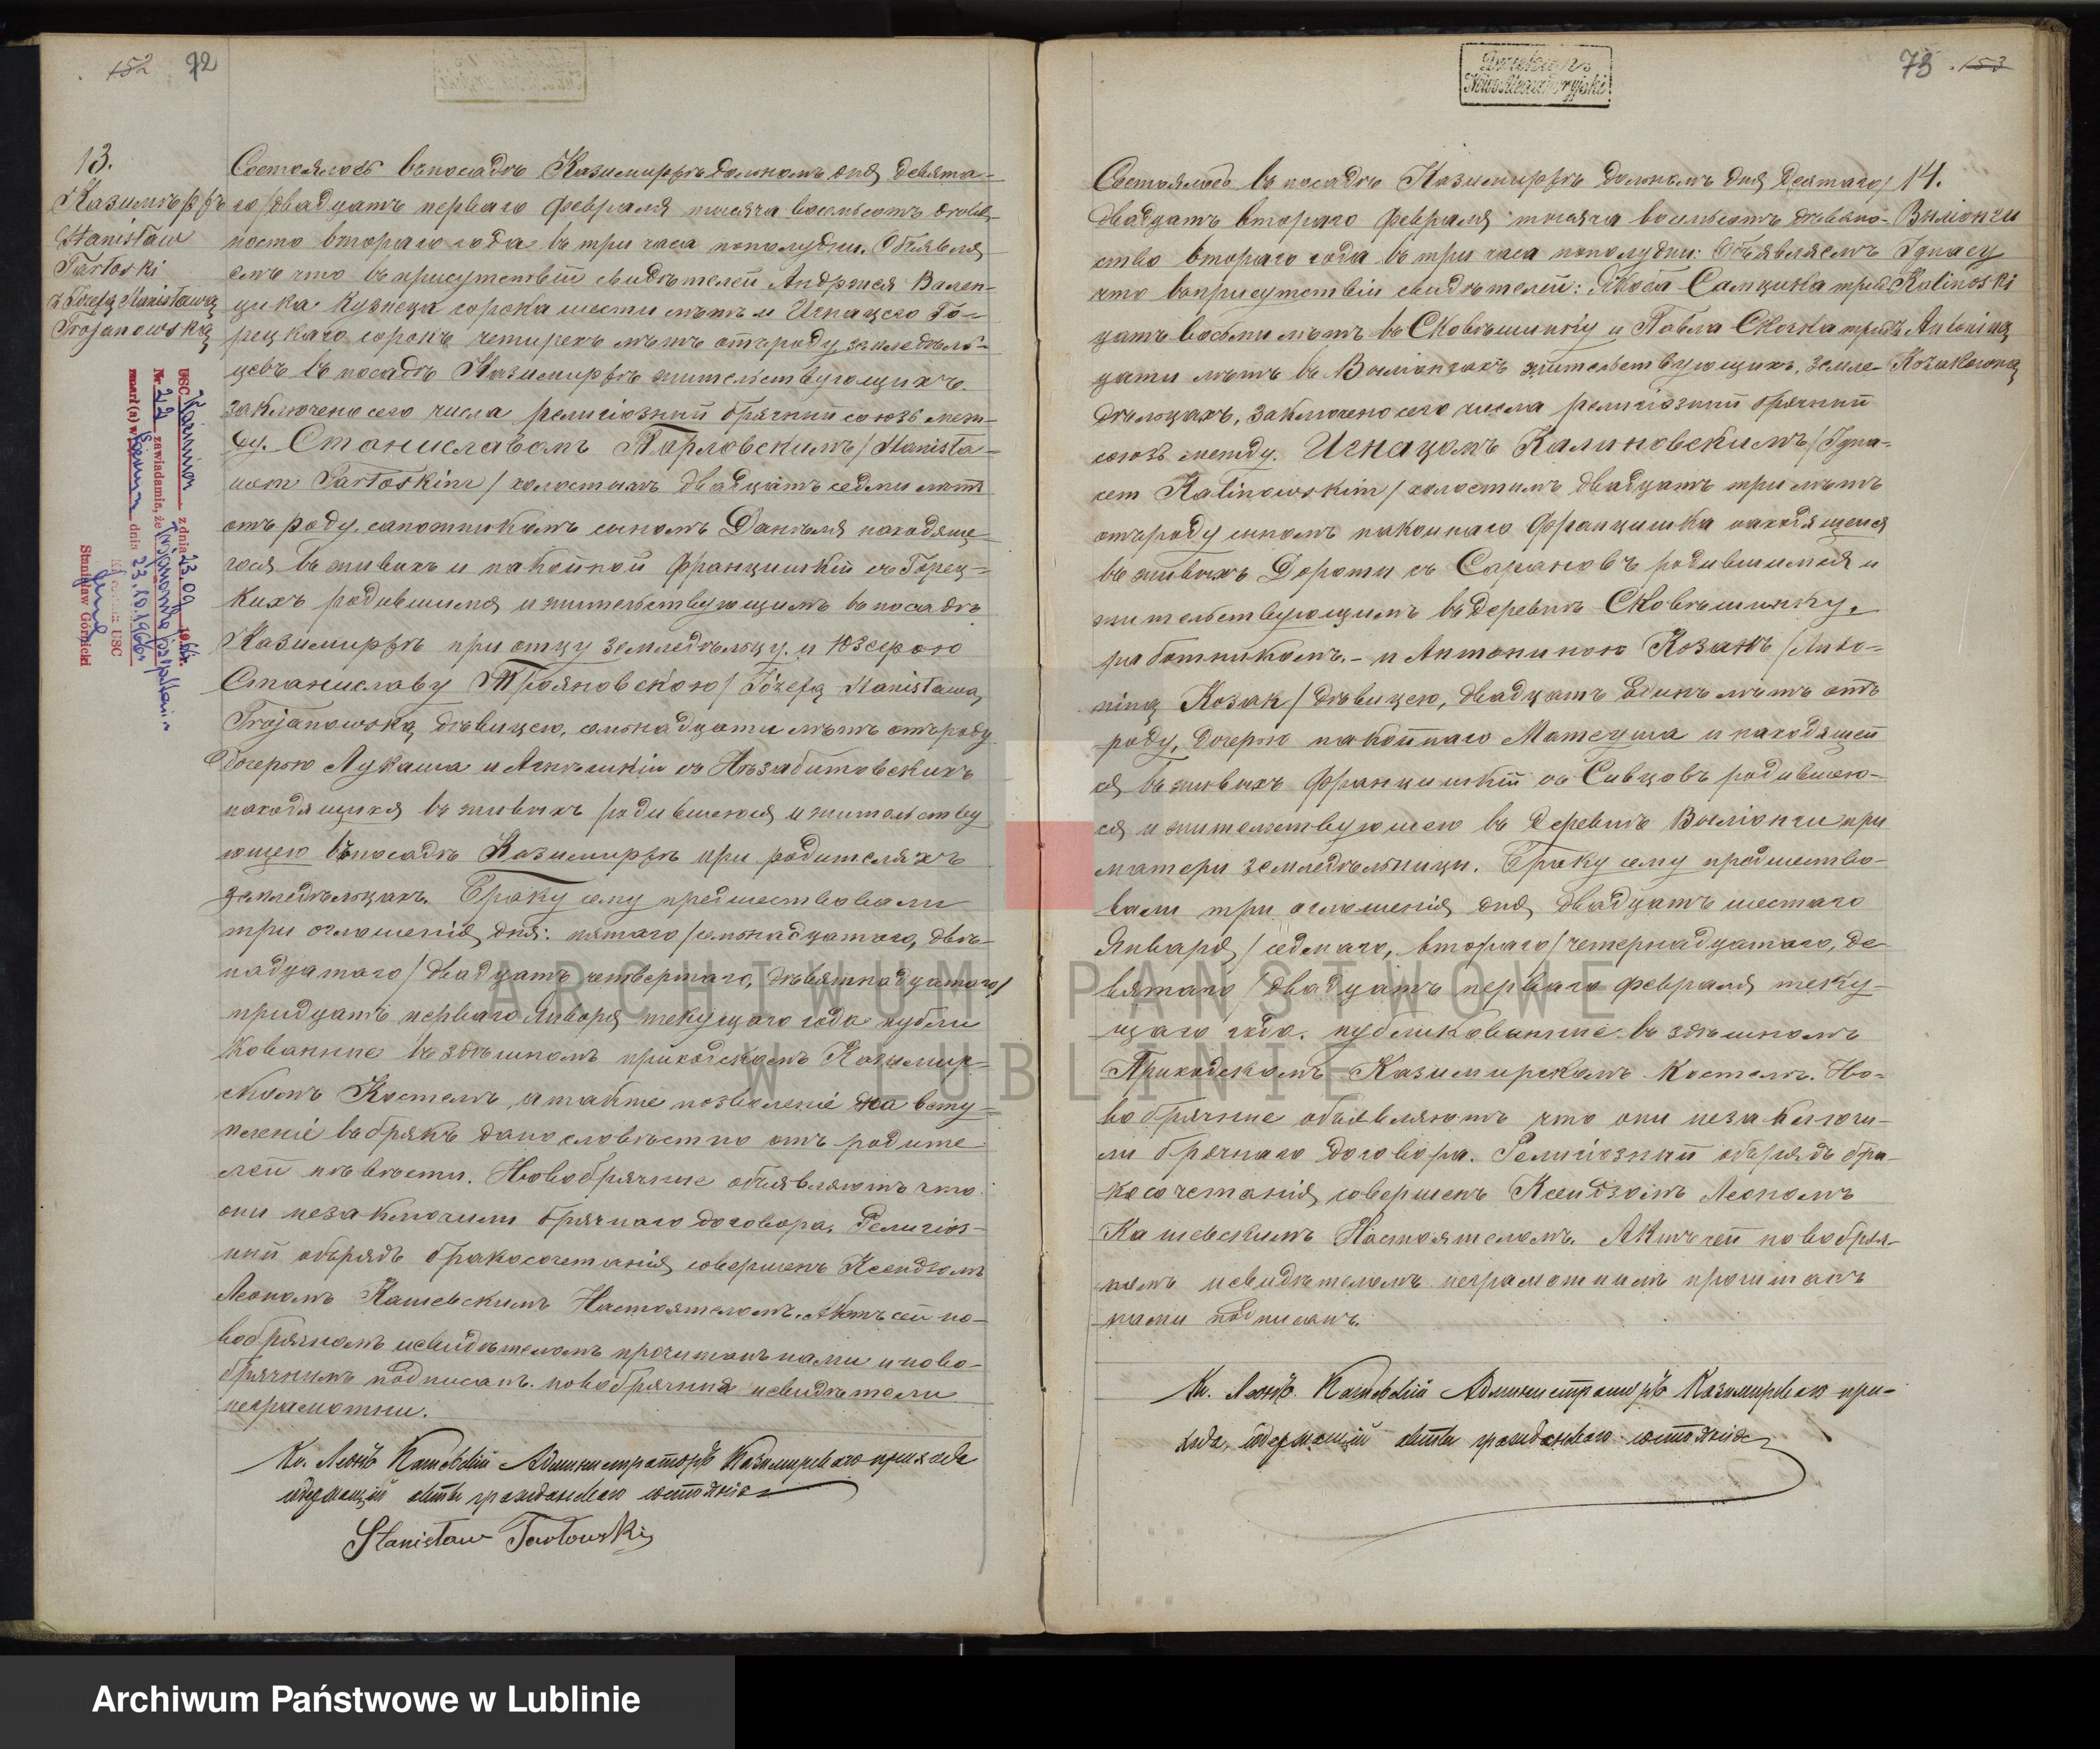 152 72
13.
Казимѣрфъ
Stanisław
Tartoski
z Józefą Stanisławą
Trojanowską
USC Kazimierz z dnia 23.09 1966 r.
Nr 22 zawiadamia, że
zmarł (a) w dnia 23.10.1966 r.
Kierownik USC
Stanisław Górnicki
Состоялось въ посадѣ Казимирфѣ дольномъ дня девята-
го/двадцать перваго февраля тысяча восемьсотъ девя-
носто втораго года въ три часа пополудни. Объявля
емъ что въ присутствіи свидѣтелей Андржея Вален-
цика кузнеца сорока шести лѣтъ и Игнацего Го-
рецкаго сорокъ четырехъ лѣтъ отъ роду, земледѣль-
цевъ въ посадѣ Казимирфѣ жительствующихъ.
заключено сего числа религіозный брачный союзъ меж-
ду. Станиславомъ Тарловскимъ/Stanisła-
wem Tartoskim/холостымъ двадцать седми лѣтъ
отъ роду сапожникомъ сыномъ Данѣля находяще-
гося въ живыхъ и покойной Францишки съ Горец-
кихъ родившимся и жительствующимъ въ посадѣ
Казимирфѣ при отцу земледѣльцу. и Юзефою
Станиславу Трояновскою/Józefą Stanisławą
Trojanowską дѣвицею, семнадцати лѣтъ отъ роду
дочерью Лукаша и Агнѣшки съ Нѣзабитовскихъ
находящихся въ живыхъ родившеюся и жительству
ющею въ посадѣ Казимирфѣ при родителяхъ
земледѣльцахъ. Браку сему предшествовали
три оглашенія дня: пятаго/семнадцатаго, двѣ-
надцатаго/двадцать четвертаго, девятнадцатаго/
тридцать перваго Января текущаго года публи
кованные въ здѣшномъ приходскомъ Казимир-
скомъ Костелѣ, а также позволеніе на всту-
пленіе въ бракъ дано словѣстно отъ родите
лей невѣсты. Новобрачные объявляютъ что
они незаключили брачнаго договора. Религіоз-
ный обрядъ бракосочетанія совершенъ Ксендзомъ
Леономъ Кашевскимъ Настоятелемъ. Актъ сей но-
вобрачномъ и свидѣтеломъ прочитанъ нами и ново-
брачнымъ подписанъ. новобрачная и свидѣтели
неграмотны.
Кс. Леонъ Кашевскій Администраторъ Казимирскаго прихода
содержащій акты гражданскаго состоянія
Stanisław Tartowski
73 153
14.
Вылionги
Ignacy
Kalinoski
Antoniną
Kozakówną
Состоялось въ посадѣ Казимирфѣ дольномъ дня десятаго/
двадцать втораго февраля тысяча восемьсотъ девяно-
ство втораго года въ три часа пополудни: Объявляемъ
что въ присутствіи свидѣтелей: Якова Самцика трид-
цать восьми лѣтъ въ Сковѣшинку и Павла Скочка трид-
цати лѣтъ въ Вылionгахъ жительствующихъ, земле-
дѣльцахъ, заключено сего числа религіозный брачный
союзъ между. Игнацомъ Калиновскимъ/Igna-
cem Kalinowskim/холостымъ двадцать три лѣтъ
отъ роду сыномъ покойнаго Францишка находящейся
въ живыхъ Дороты съ Сарановъ родившимся и
жительствующимъ въ деревнѣ Сковѣшинку,
работникомъ.- и Антониною Козакъ/Anto-
niną Kozak/дѣвицею, двадцать одинъ лѣтъ отъ
роду, дочерью покойнаго Матеуша и находящей
ся въ живыхъ Францишки съ Сивцовъ родившею-
ся и жительствующею въ деревнѣ Вылionги при
матери земледѣльници. Браку сему предшество-
вали три оглашенія дня, двадцать шестаго
Января/седмаго, втораго/четырнадцатаго, де
вятаго/двадцать перваго февраля теку-
щаго года. публикованные въ здѣшномъ
Приходскомъ Казимирскомъ Костелѣ. Но-
вобрачные объявляютъ что они незаключи-
ли брачнаго договора. Религіозный обрядъ бра-
косочетанія совершенъ Ксендзомъ Леономъ
Кашевскимъ Настоятелемъ. Актъ сей новобрач-
нымъ и свидѣтеломъ неграмотнымъ прочитанъ
нами подписанъ.
Кс. Леонъ Кашевскій Администраторъ Казимирскаго при-
хода, содержащій акты гражданскаго состоянія
ARCHIWUM PAŃSTWOWE
W LUBLINIE
Archiwum Państwowe w Lublinie